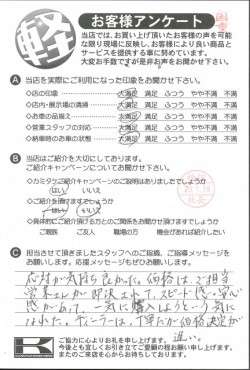 軽
お客様アンケート
当店では、お買い上げ頂いたお客様の声を可能
な限り現場に反映し、お客様により良い商品と
サービスを提供する事に努めています。
大変お手数ですが是非お声をお聞かせ下さい。
A 当店を実際にご利用になった印象をお聞かせ下さい。
◇店の印象 大満足 満足 ふつう やや不満 不満
◇店内・展示場の清掃 大満足 満足 ふつう やや不満 不満
◇お車の品揃え 大満足 満足 ふつう やや不満 不満
◇営業スタッフの対応 大満足 満足 ふつう やや不満 不満
◇納車時のお車の状態 大満足 満足 ふつう やや不満 不満
B 当店はご紹介を大切にしております。
ご紹介キャンペーンについてお聞かせ下さい。
◇カミタケご紹介キャンペーンのご説明はありましたでしょうか
はい いいえ
◇ご紹介を頂けますでしょうか
はい いいえ
◇具体的にご紹介頂ける方とのご関係をお聞かせ頂けますでしょうか
ご親族 ご友人 職場の方 機会があれば紹介したい
社長
C 担当させて頂きましたスタッフへのご指摘、ご指導メッセージを
お願いします。応援メッセージもぜひお願いします。
応対が気持ち良かった。価格は、ご担当
営業さんが即決されて、スピード感・
感があって、一気に購入しようという気に
なれた。ディーラーは、丁寧だが価格決定が
遅い。
K
ご協力に心よりお礼を申し上げます。
今後とも宜しくお引き立てご愛顧の程お願い申し上げます。
またのご来店を心からお待ちしております。